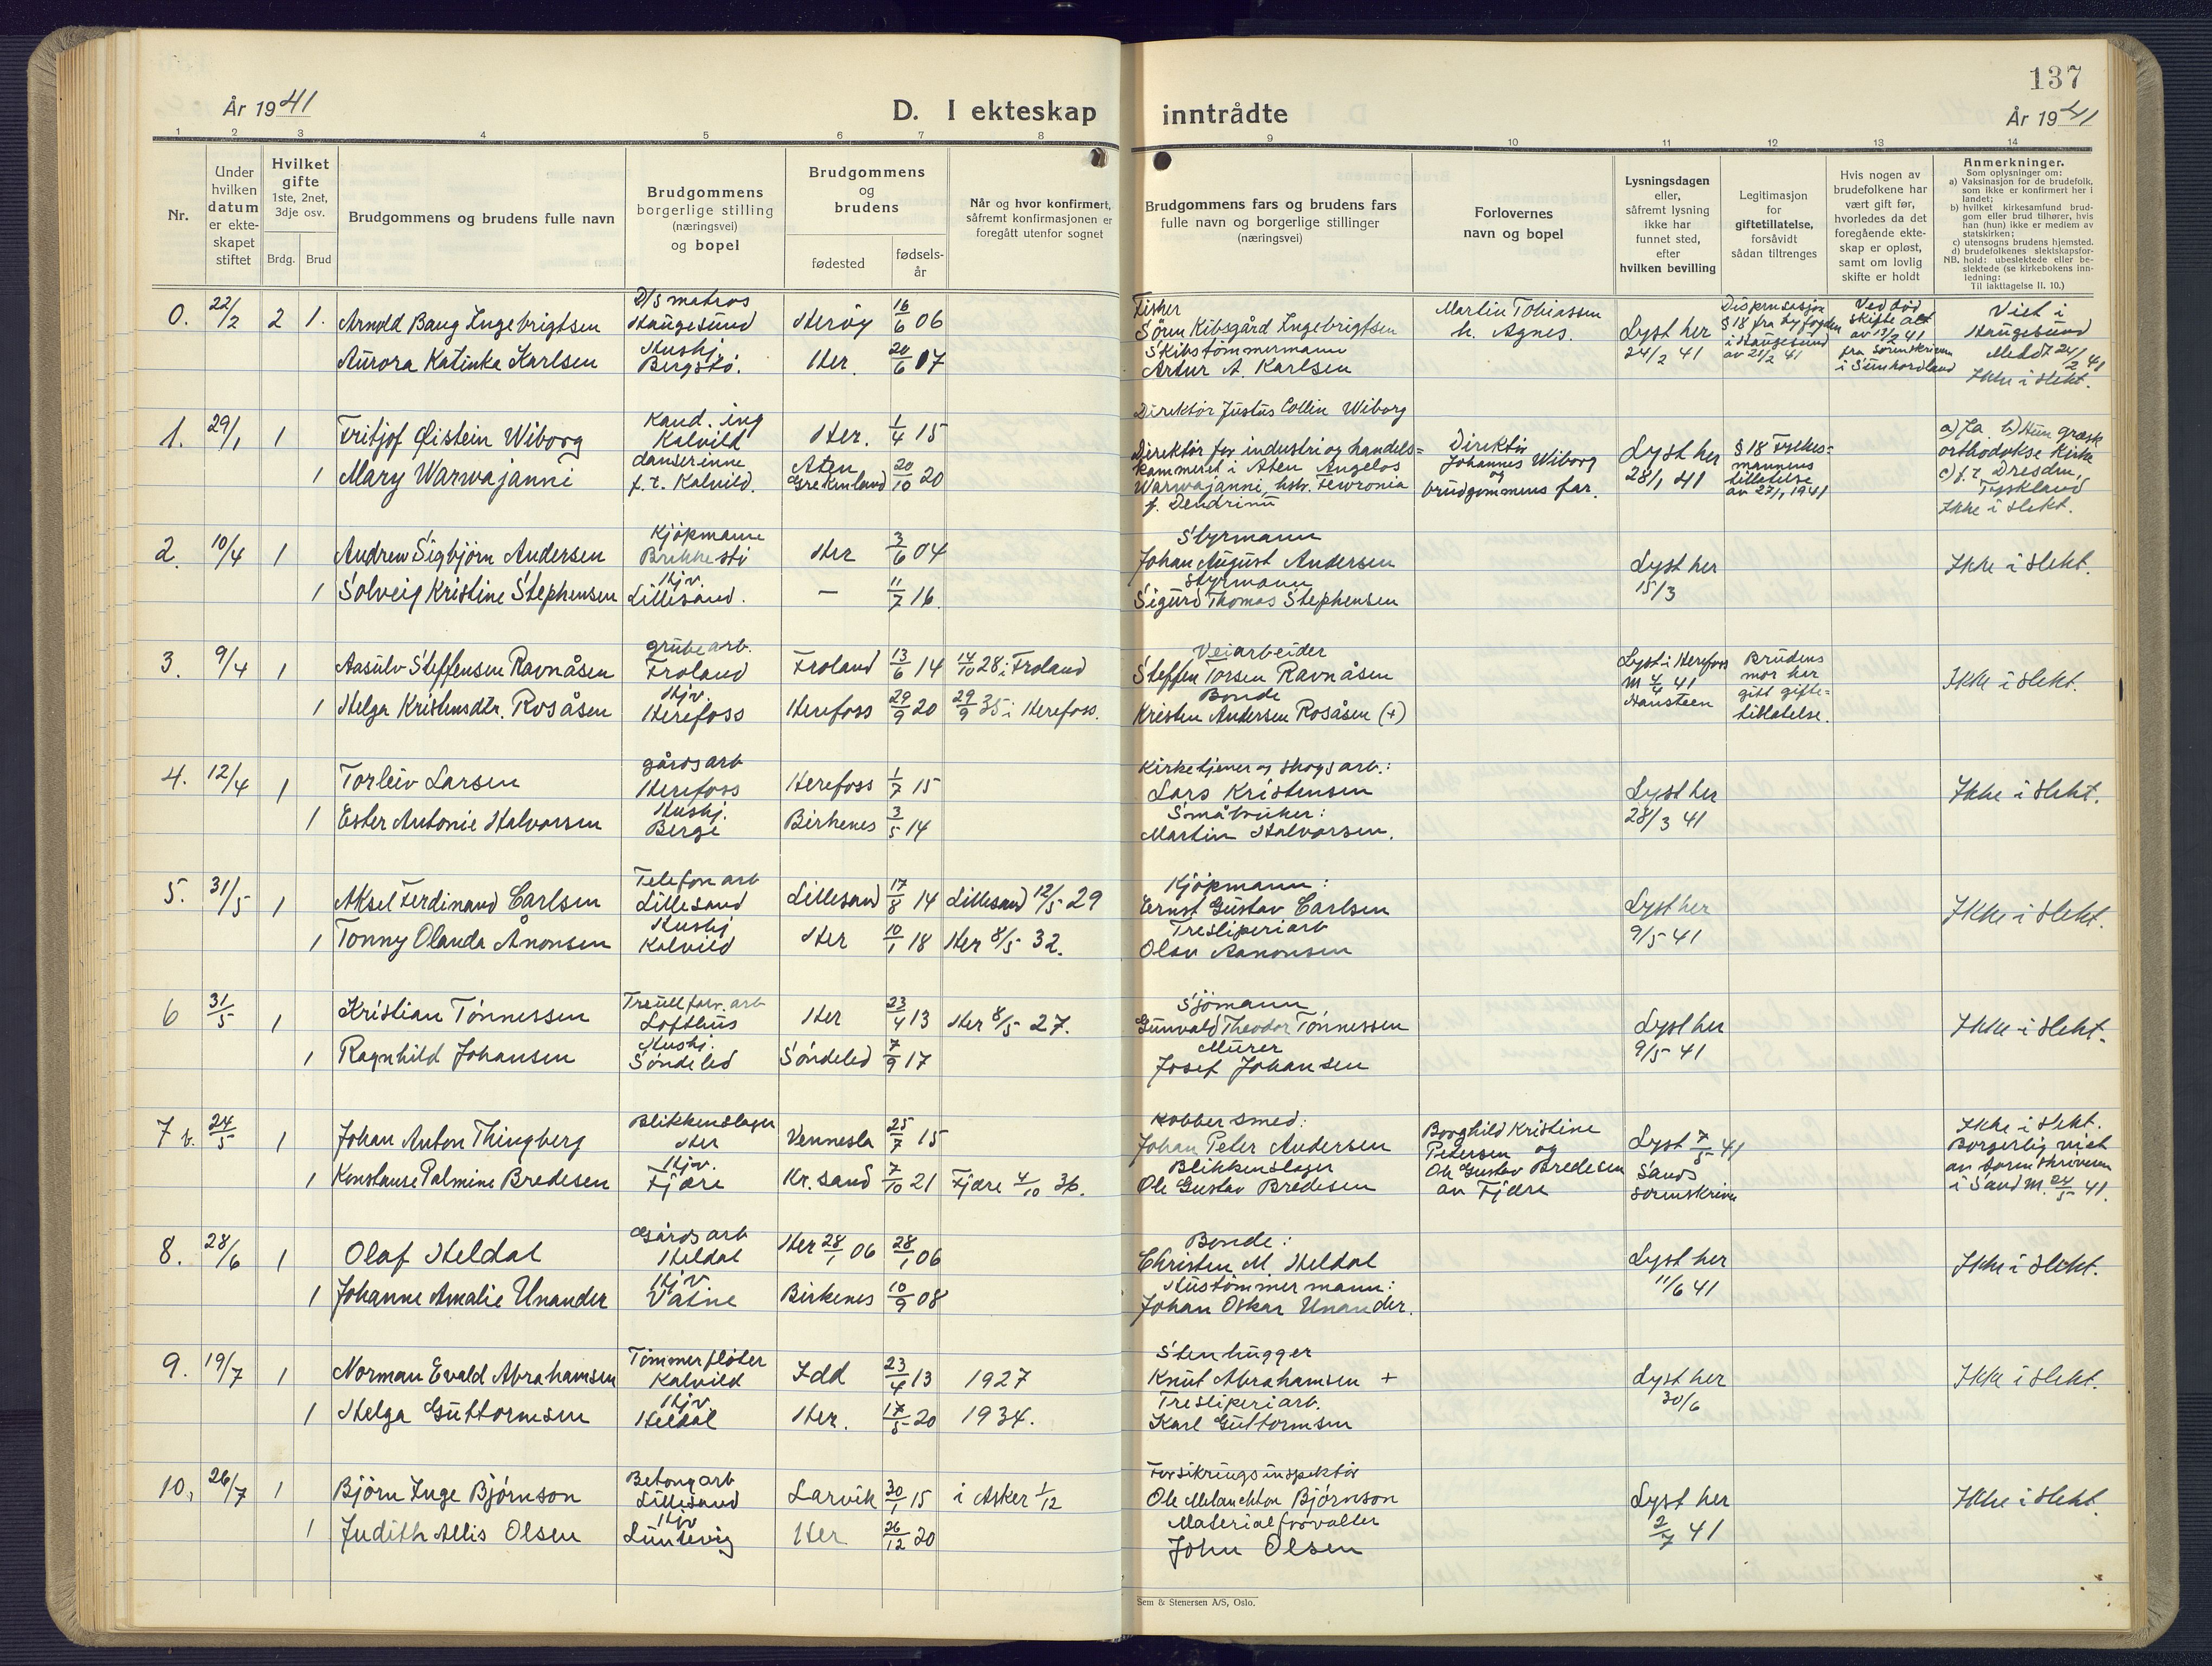 137
År 1941
D. I ekteskap inntrådte
År 1941
1 2 3 4 5 6 7 8 9 10 11 12 13 14
Nr.
Under
hvilken
datum
er ekte-
skapet
stiftet
Hvilket
gifte
1ste, 2net,
3dje osv.
Brdg. Brud
Brudgommens og brudens fulle navn
Brudgommens
borgerlige stilling
(næringsvei)
og bopel
Brudgommens
og
brudens
fødested
fødsels-
år
Når og hvor konfirmert,
såfremt konfirmasjonen er
foregått utenfor sognet
Brudgommens fars og brudens fars
fulle navn og borgerlige stillinger
(næringsvei)
Forlovernes
navn og bopel
Lysningsdagen
eller,
såfremt lysning
ikke har
funnet sted,
efter
hvilken bevilling
Legitimasjon
for
giftetillatelse,
forsåvidt
sådan tiltrenges
Hvis nogen av
brudefolkene har
vært gift før,
hvorledes da det
foregående ekte-
skap er opløst,
samt om lovlig
skifte er holdt
Anmerkninger.
Som oplysninger om:
a) Vaksinasjon for de brudefolk,
som ikke er konfirmert her i
landet;
b) hvilket kirkesamfund brud-
gom eller brud tilhører, hvis
han (hun) ikke er medlem av
statskirken;
c) utensogns brudens hjemsted.
d) brudefolkenes slektskapsfor-
hold: ubeslektede eller be-
slektede (se kirkebokens inn-
ledning:
NB.
Til iakttagelse II. 10.)
0. 22/2 2 1. Arnold Baug Ingebrigtsen
D/s matros
Haugesund
Herøy 16/6 06
Fisker
Søren Kibsgård Ingebrigtsen
Martin Tobiassen
h. Agnes.
Lyst her
24/2 41
Dispensasjon
§18 fra byfogden
i Haugesund
av 21/2 41
Ved død
skifte alt
av 13/2 41
fra Sorenskriveren
i Sunhordland
Viet i
Haugesund
Meldt 24/2 41
Ikke i slekt.
Aurora Katinka Karlsen
Hushj.
Bergstø.
Her. 20/6 07
Skibstømmermann
Artur A. Karlsen
1. 29/1 1 Fritjof Øistein Wiborg
Kand. ing
Kalvild
Her. 1/4 15
Direktør Justus Collin Wiborg
Direktør
Johannes Wiborg
og
brudgommens far.
Lyst her
28/1 41
§18 Fylkes-
mannens
tillatelse
av 27/1 1941
a) Ja b) Hun græsk
orthodokse Kirke
c) f.t. Dresden,
Tyskland
Ikke i slekt.
1 Mary Warwajanni
danserinne
f.t. Kalvild.
Aten
Grekenland 20/10 20
Direktør for industri og handels-
kammeret i Aten Angelos
Warwajanni, hstr. Fewronia
f. Dendrinu
2. 10/4 1 Andrew Sigbjørn Andersen
Kjøpmann
Brekkestø
Her 3/6 04
Styrmann
Johan August Andersen
Lyst her
15/3
Ikke i slekt.
1 Solveig Kristine Stephensen
Hjv.
Lillesand.
— 11/7 16.
Styrmann
Sigurd Thomas Stephensen
3. 9/4 1 Aasulv Steffensen Ravnåsen
grubearb.
Froland
Froland 13/6 14 14/10 28 i Froland
Veiarbeider
Steffen Torsen Ravnåsen
Lyst i Herefoss
m 4/4 41
Hansteen
Brudens
mor har
gitt gifte-
tillatelse.
Ikke i slekt.
1 Helga Kristensdtr. Rosåsen
Hjv.
Herefoss
Herefoss 29/9 20 29/9 35 i Herefoss.
Bonde
Kristen Andersen Rosåsen (+)
4. 12/4 1 Torleiv Larsen
gårdsarb
Herefoss
Herefoss 1/7 15
Kirketjener og skogsarb.:
Lars Kristensen
Lyst her
28/3 41
Ikke i slekt.
1 Ester Antonie Halvorsen
Hushj.
Berge
Birkenes 3/5 14
Småbruker:
Martin Halvorsen.
5. 31/5 1 Aksel Ferdinand Carlsen
Telefonarb
Lillesand
Lillesand 17/8 14 Lillesand 12/5 29
Kjøpmann:
Ernst Gustav Carlsen
Lyst her
9/5 41
Ikke i slekt.
1 Tonny Olanda Ånonsen
Hushj
Kalvild
Her 10/1 18 Her 8/5 32.
Tresliperiarb
Olav Aanonsen
6 31/5 1 Kristian Tønnessen
Treullfabr. arb
Lofthus
Her 23/4 13 Her 8/5 27.
Sjømann
Gunvald Theodor Tønnessen
Lyst her
9/5 41
Ikke i slekt.
1 Ragnhild Johansen
Hushj.
Søndeled
Søndeled 7/9 17
Murer
Josef Johansen
7 b. 24/5 1 Johan Anton Thingberg
Blikkenslager
Her
Vennesla 25/7 15
Kobbersmed:
Johan Peter Andersen
Borghild Kristine
Petersen og
Ole Gustav Bredesen
av Fjære
Lyst 7/5 41
Sands
sorenskriver
Ikke i slekt.
Borgerlig viet
av sorenskriveren
i Sand m. 24/5 41.
1 Konstanse Palmine Bredesen
Hjv.
Fjære
Kr.sand 7/10 21 Fjære 4/10 36.
Blikkenslager
Ole Gustav Bredesen
8. 28/6 1 Olaf Heldal
Gårdsarb
Heldal
Her 28/1 06 28/1 06
Bonde:
Christen M Heldal
Lyst her
11/6 41
Ikke i slekt.
1 Johanne Amalie Unander
Hjv
Vatne
Birkenes 10/9 08
Hustømmermann:
Johan Oskar Unander.
9. 19/7 1 Norman Evald Abrahamsen
Tømmerfløter
Kalvild
Idd 23/4 13 1927
Stenhugger
Knut Abrahamsen +
Lyst her
30/6
Ikke i slekt.
1 Helga Guttormsen
Hjv
Heldal
Her. 17/5 20 1934.
Tresliperiarb.
Karl Guttormsen
10. 26/7 1 Bjørn Inge Bjørnson
Betongarb
Lillesand
Larvik 30/1 15 i Asker 1/12
Forsikringsinspektør
Ole Melanchton Bjørnson
Lyst her
2/7 41
Ikke i slekt.
1 Judith Allis Olsen
Hjv
Luntevig
Her 26/12 20
Materialforvalter
John Olsen
Sem & Stenersen A/S, Oslo.